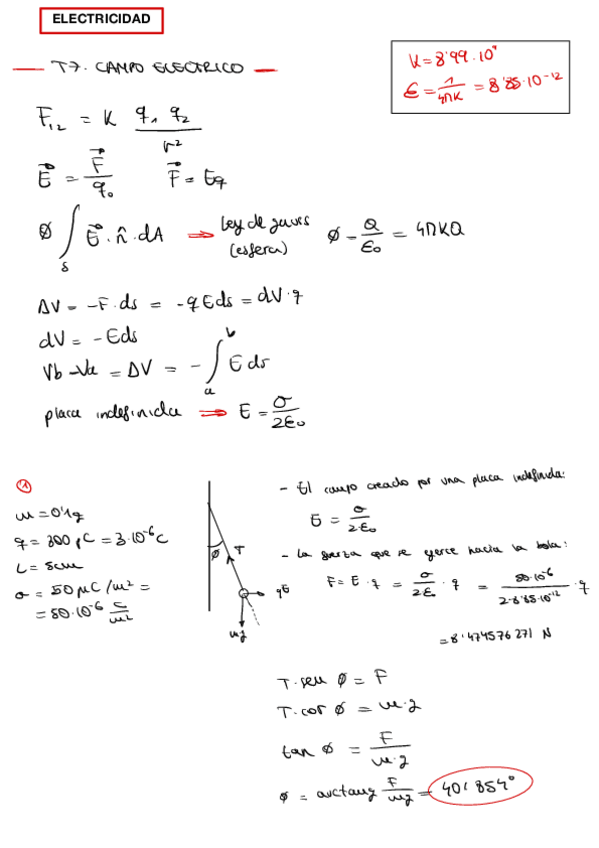 ELECTRICIDAD
T7. CAMPO ELECTRICO
K = 8'99·10⁹
Є = 1/4πK = 8'85·10⁻¹²
F₁₂ = K q₁ q₂ / r²
E⃗ = F⃗/q₀ F⃗ = Eq
Ø ∫s E⃗·n̂·dA ⇒ Ley de gauss (esfera) Ø - Q/ε₀ = 4πKQ
ΔV = -F·ds = -qEds = dV·q
dV = -Eds
Vb-Va = ΔV = - ∫ₐᵇ E ds
placa indefinida ⇒ E = σ/2ε₀
①
m = 0'1g
q = 300 pC = 3·10⁻⁶C
L = 5cm
σ = 50 μC/m² =
= 50·10⁻⁶ C/m²
Ø T qE
mg
- El campo creado por una placa indefinida:
E = σ/2·ε₀
- La fuerza que se ejerce hacia la bola:
F = E·q = σ/2ε₀ · q = 50·10⁻⁶/2·8'85·10⁻¹² · q
= 8'474576271 N
T·sen Ø = F
T·cos Ø = m·g
tan Ø = F/m·g
Ø = arctang F/mg = 40'854°